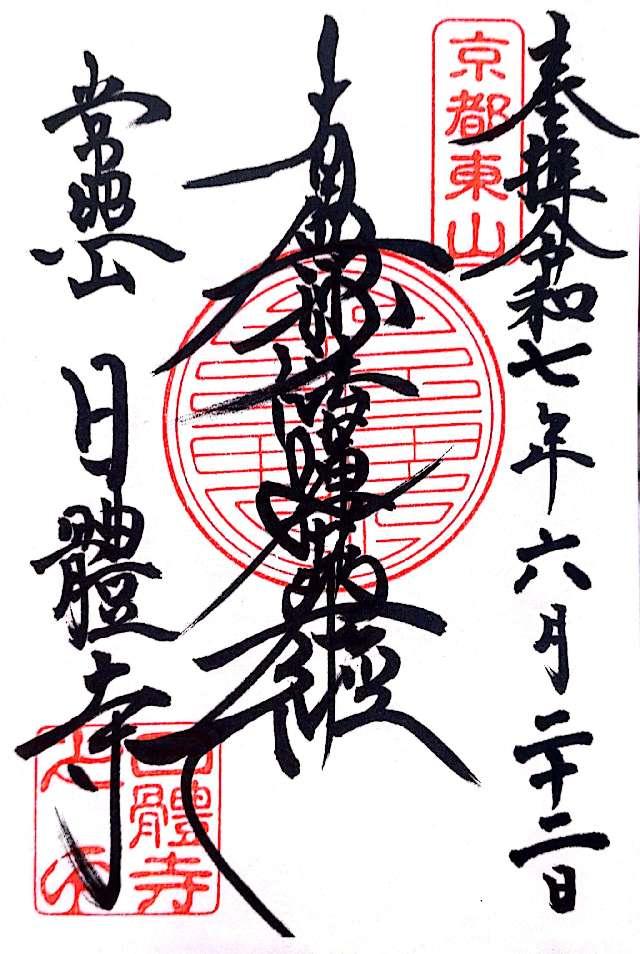 京都東山
奉拝 令和七年六月二十二日
南無妙法蓮華經
常照山 日體寺
日體寺之印